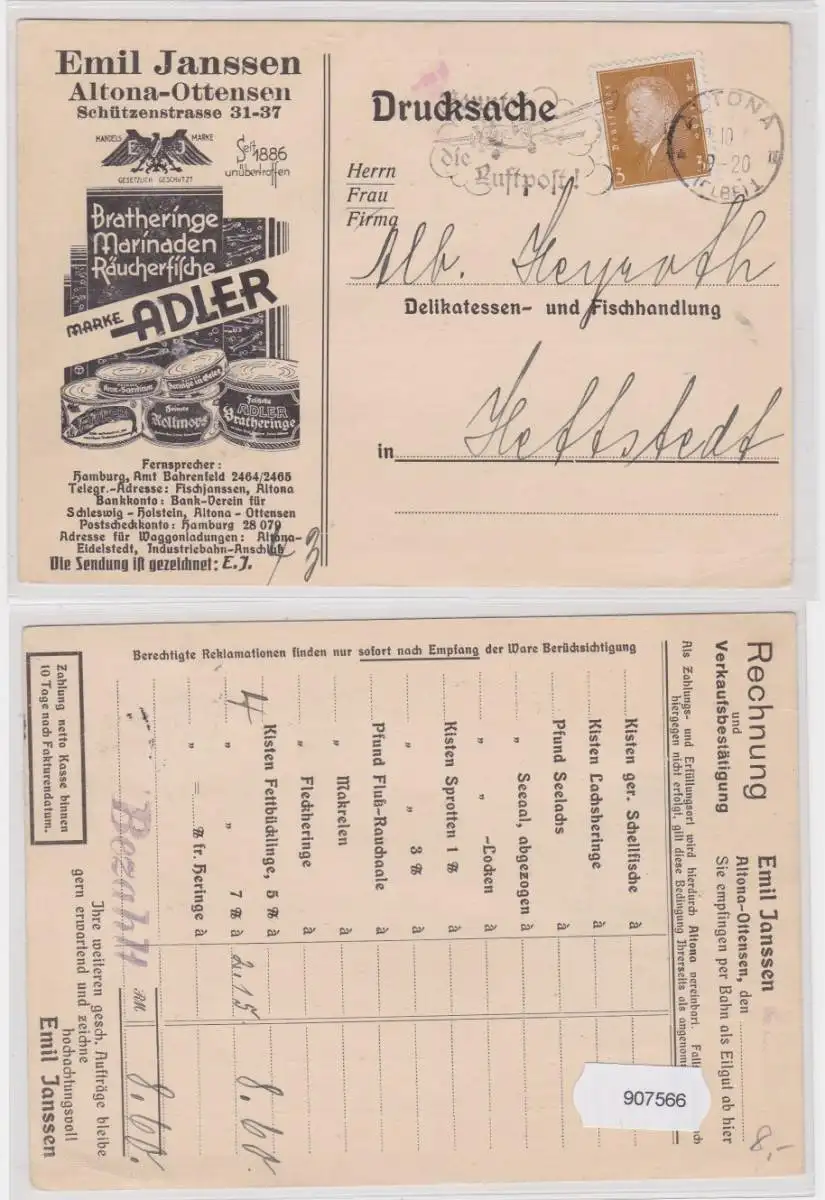 Emil Janssen
Altona-Ottensen
Schützenstrasse 31-37
HANDELS MARKE
E J
GESETZLICH GESCHÜTZT
Seit 1886
unübertroffen
Bratheringe
Marinaden
Räucherfische
MARKE ADLER
Rollmops
Feinste
ADLER
Bratheringe
Fernsprecher:
Hamburg, Amt Bahrenfeld 2464/2465
Telegr.-Adresse: Fischjanssen, Altona
Bankkonto: Bank-Verein für
Schleswig - Holstein, Altona - Ottensen
Postscheckkonto: Hamburg 28 079
Adresse für Waggonladungen: Altona-
Eidelstedt, Industriebahn-Anschluß
Die Sendung ist gezeichnet: E.J.
Drucksache
die
Luftpost!
3 3
ALTONA
9-20
(ELBE)
Herrn
Frau
Firma
Alb. Heyroth
Delikatessen- und Fischhandlung
in Hettstedt
Rechnung
und
Verkaufsbestätigung
Emil Janssen
Altona-Ottensen, den
Sie empfingen per Bahn als Eilgut ab hier
Als Zahlungs- und Erfüllungsort wird hierdurch Altona vereinbart. Falls
hiergegen nicht erfolgt, gilt diese Bedingung Ihrerseits als angenommen
Kisten ger. Schellfische à
Kisten Lachsheringe à
Pfund Seelachs à
" Seeaal, abgezogen à
" " -Locken à
Kisten Sprotten 1 ℔ à
" " 3 ℔ à
Pfund Fluß-Rauchaale à
" Makrelen à
" Fleckheringe à
4 Kisten Fettbücklinge, 5 ℔ à 2.15 8.60
" " " 7 ℔ à
" = ℔ fr. Heringe à
RM. 8.60
Bezahlt
Berechtigte Reklamationen finden nur sofort nach Empfang der Ware Berücksichtigung
Zahlung netto Kasse binnen
10 Tage nach Fakturendatum.
Ihre weiteren gesch. Aufträge bleibe
gern erwartend und zeichne
hochachtungsvoll
Emil Janssen
907566
8,-